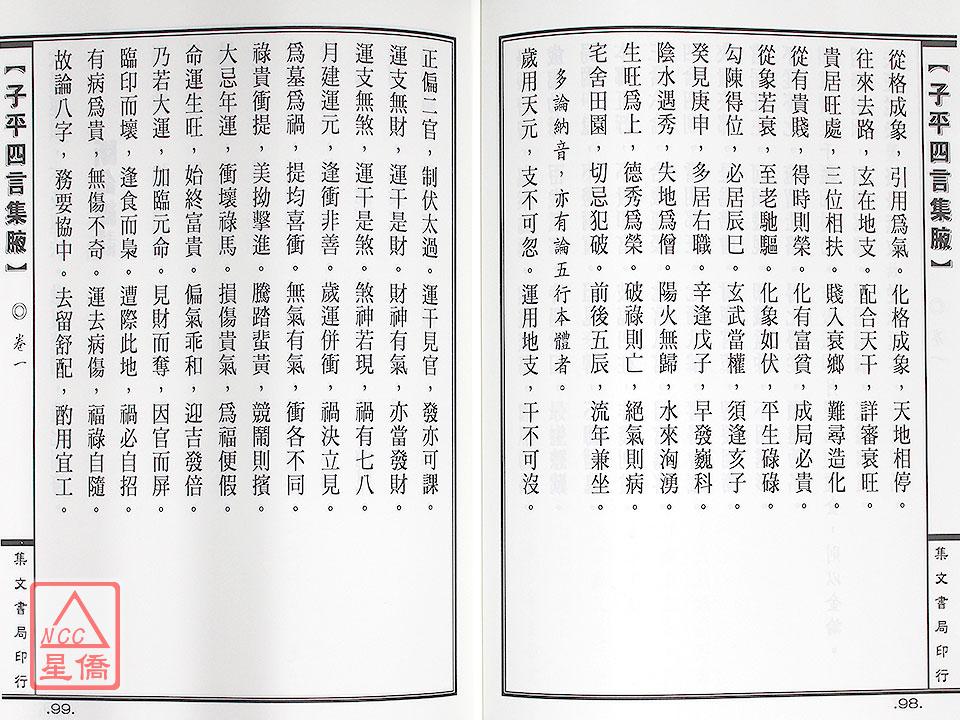 【子平四言集腋】
從格成象，引用爲氣。化格成象，天地相停。
往來去路，玄在地支。配合天干，詳審衰旺。
貴居旺處，三位相扶。賤入衰鄉，難尋造化。
從有貴賤，得時則榮。化有富貧，成局必貴。
從象若衰，至老馳驅。化象如伏，平生碌碌。
勾陳得位，必居辰巳。玄武當權，須逢亥子。
癸見庚申，多居右職。辛逢戊子，早發巍科。
陰水遇秀，失地爲僧。陽火無歸，水來洶湧。
生旺爲上，德秀爲榮。破祿則亡，絕氣則病。
宅舍田園，切忌犯破。前後五辰，流年兼坐。
多論納音，亦有論五行本體者。
歲用天元，支不可忽。運用地支，干不可沒。
集文書局印行
.98.
正偏二官，制伏太過。運干見官，發亦可課。
運支無財，運干是財。財神有氣，亦當發財。
運支無煞，運干是煞。煞神若現，禍有七八。
月建運元，逢衝非善。歲運併衝，禍決立見。
爲墓爲禍，提均喜衝。無氣有氣，衝各不同。
祿貴衝提，美拗擊進。騰踏蜚黃，競鬧則擯。
大忌年運，衝壞祿馬。損傷貴氣，爲福便假。
命運生旺，始終富貴。偏氣乖和，迎吉發倍。
乃若大運，加臨元命。見財而奪，因官而屏。
臨印而壞，逢食而梟。遭際此地，禍必自招。
有病爲貴，無傷不奇。運去病傷，福祿自隨。
故論八字，務要協中。去留舒配，酌用宜工。
【子平四言集腋】
◎卷一
集文書局印行
.99.
NCC
星僑